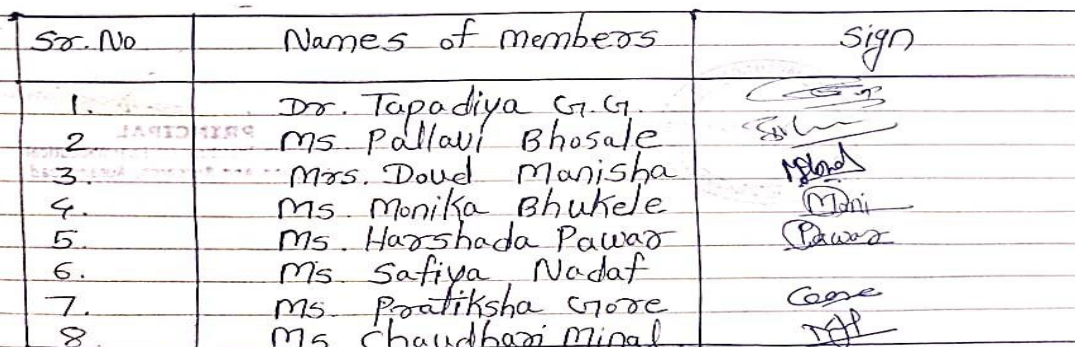 Sr. No Names of members Sign
1. Dr. Tapadiya G.G.
2 Ms. Pallavi Bhosale
3. Mrs. Doud Manisha
4. Ms. Monika Bhukele Moni
5. Ms. Harshada Pawar Pawar
6. Ms. Safiya Nadaf
7. Ms. Pratiksha Gore Gore
8 Ms Chaudhari Minal
PRINCIPAL